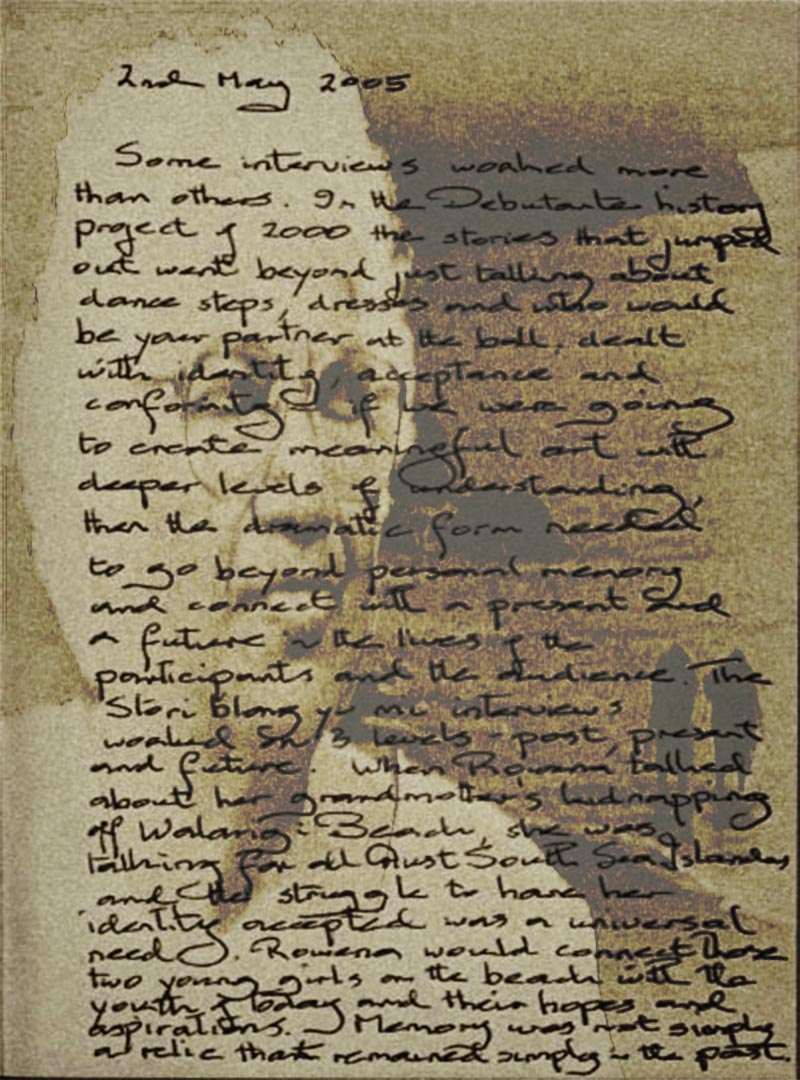 2nd May 2005
Some interviews worked more
than others. In the Debutante history
project of 2000 the stories that jumped
out went beyond just talking about
dance steps, dresses and who would
be your partner at the ball, dealt
with identity, acceptance and
conformity if we were going
to create meaningful art with
deeper levels of understanding,
then the dramatic form needed
to go beyond personal memory
and connect with a present and
a future in the lives of the
participants and the audience. The
Stori Blong yu mi interviews
worked on 3 levels - past, present
and future. When Rowena talked
about her grandmother's kidnapping
off Walangi Beach, she was
talking for all Aust South Sea Islanders
and the struggle to have her
identity accepted was a universal
need. Rowena would connect those
two young girls on the beach with the
youth of today and their hopes and
aspirations. Memory was not simply
a relic that remained simply in the past.